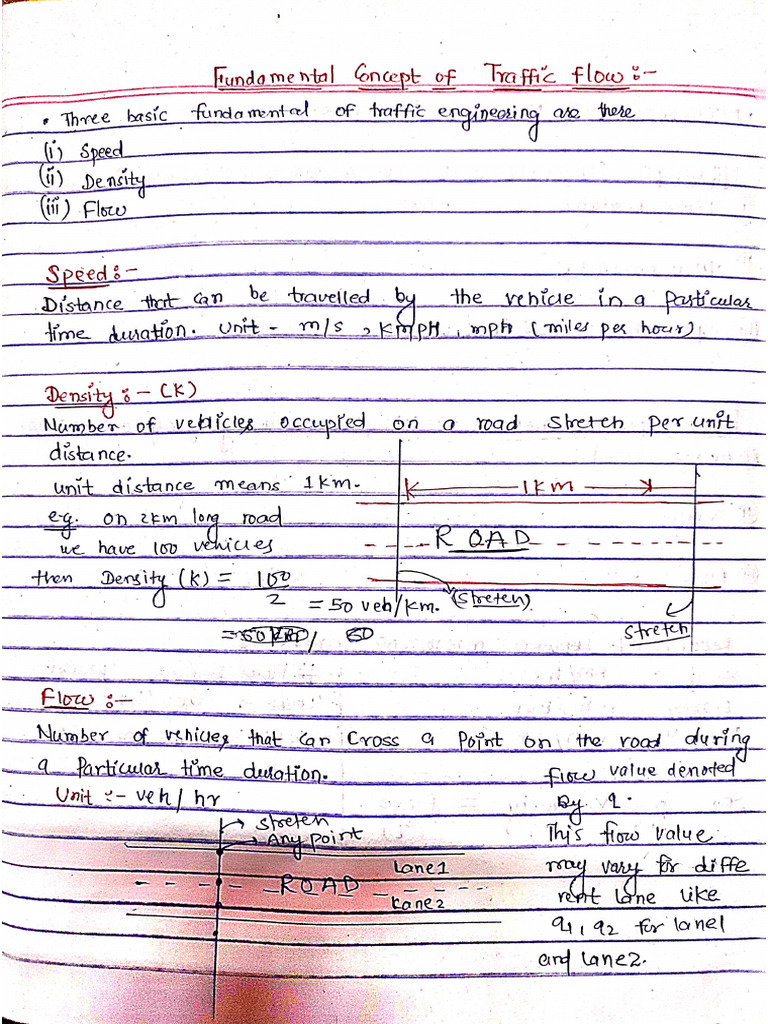 Fundamental Concept of Traffic flow :-
• Three basic fundamental of traffic engineering are there
(i) Speed
(ii) Density
(iii) Flow
Speed :-
Distance that can be travelled by the vehicle in a particular
time duration. Unit - m/s, KmPH, mph (miles per hour)
Density :- (K)
Number of vehicles occupied on a road stretch per unit
distance.
unit distance means 1km.
1KM
e.g. on 2km long road
ROAD
we have 100 vehicles
then Density (K) = 100
2
= 50 veh/km.
(stretch)
stretch
Flow :-
Number of vehicles that can cross a point on the road during
a particular time duration.
Unit :- veh/hr
stretch
Any point
Lane1
ROAD
Lane2
flow value denoted
by q.
This flow value
may vary for diffe
rent lane like
q1, q2 for lane1
and lane2.